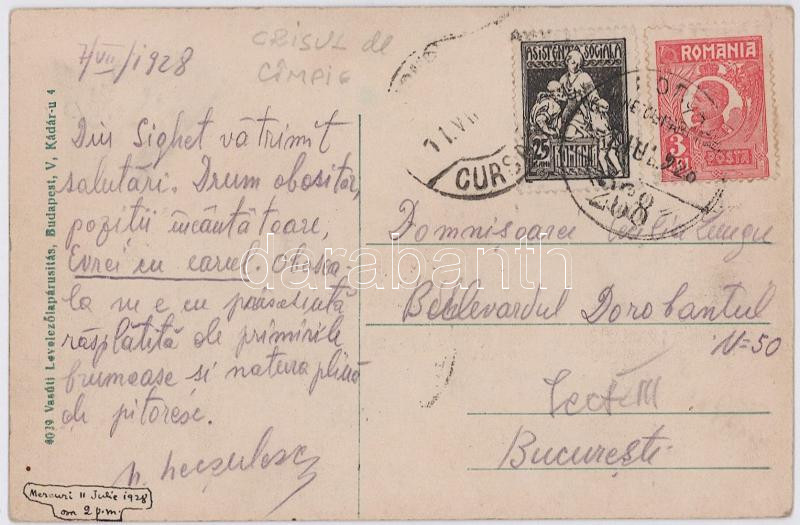 7/VII/1928
CRISUL de
CÎMPIE
Din Sighet va trimit
salutări. Drum obositor,
poziții încântătoare,
Evrei cu carul. Obosea-
la ne e cu prisosință
răsplătită de primirile
frumoase si natura plină
de pitoresc.
Mercuri 11 Iulie 1928
om 2 p.m.
4019 Vasúti Levelezőlapárusitás, Budapest, V, Kádár-u 4
ASISTENTA SOCIALA
25 BANI
ROMANIA
3 LEI
POSTA
17.VII
CURS
268
Domnisoarei
Bulevardul Dorobantul
N=50
Sect III
București
darabanth